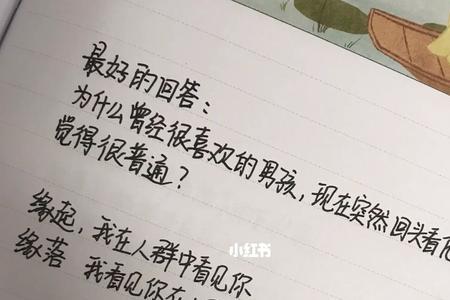 最好的回答：
为什么曾经很喜欢的男孩，现在突然回头看
觉得很普通？
缘起，我在人群中看见你
缘落 我看见你在
小红书